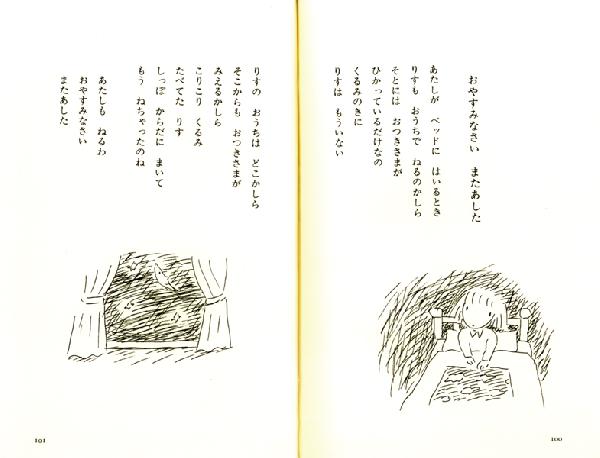 おやすみなさい またあした
あたしが ベッドに はいるとき
りすも おうちで ねるのかしら
そとには おつきさまが
ひかっているだけなの
くるみのきに
りすは もういない
100
りすの おうちは どこかしら
そこからも おつきさまが
みえるかしら
こりこり くるみ
たべてた りす
しっぽ からだに まいて
もう ねちゃったのね
あたしも ねるわ
おやすみなさい
またあした
101